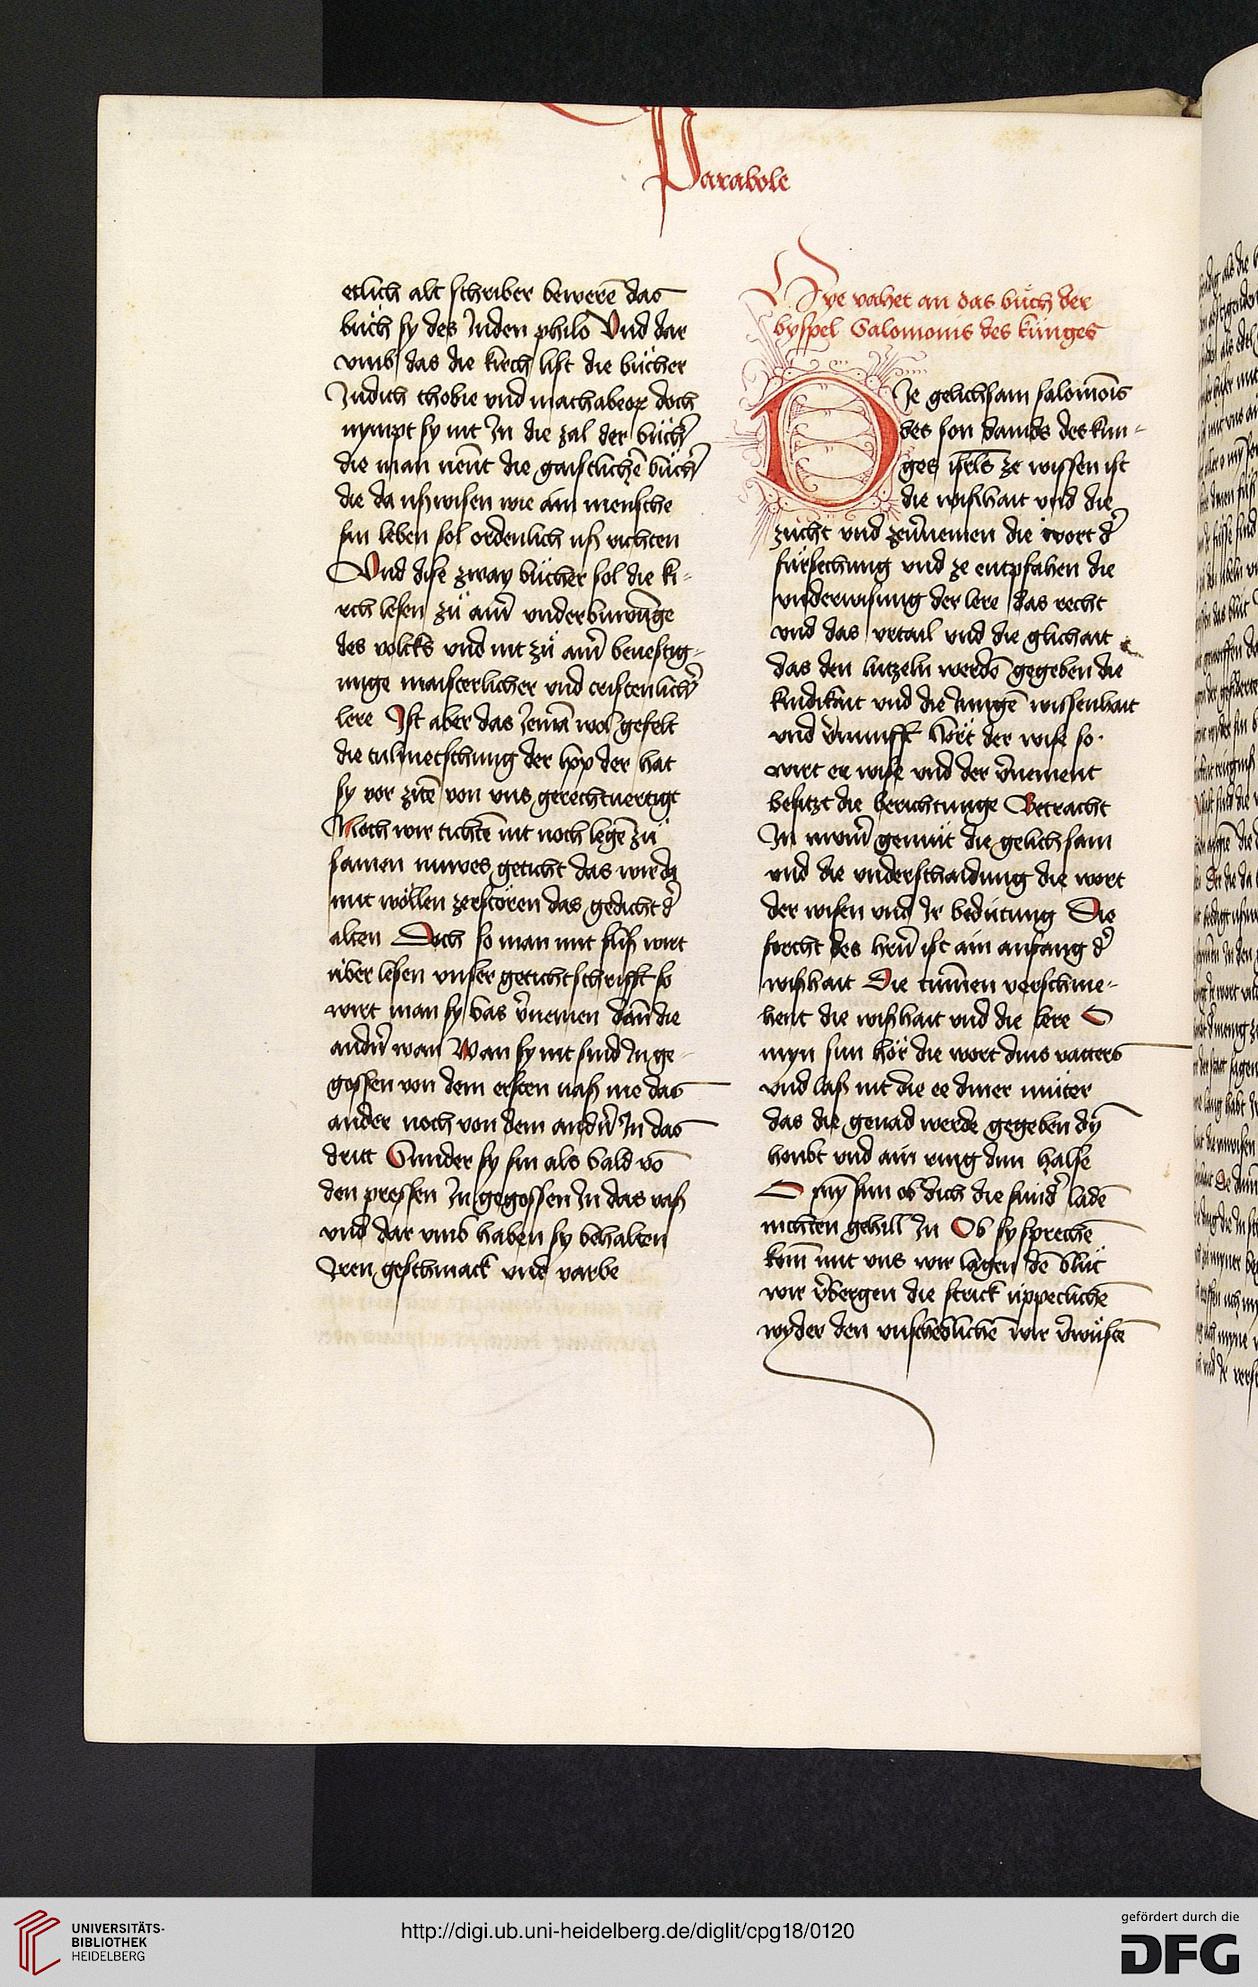 Parabole
etlich alt schriber bewerē das
bůch sy des Juden philo Vnd dar
vmb das die kirch list die bücher
Judich thobie vnd machabeoꝝ doch
nympt sy nit Jn die zal der büch̄
die man nen̄t die gaistlichē büch̄
die da vß wisen wie ain mensche
sin leben sol ordenlich vß richten
Vnd dise zway bücher sol die ki-
rch lesen zů ain̄ vnderwin̄nge
des volcks vnd nit zů ain̄ beuestig-
unge maisterlicher vnd cristenlich̄
lere Jst aber das Jemā wol gefelt
die tulmetschung der lxx der hat
sy vor zitē von vns gerechtuertigt
Noch wir tichtē nit noch legē zů
samen nuwes geticht das wir da
mit wöllen zerstören das gedicht d̄
alten Doch so man mit fliß wirt
über lesen vnser geticht schrifft so
wirt man sy bas v̄nemen dan̄ die
andn̄ wan Wan sy nit sind Jn ge-
gossen von dem ersten vaß Jne das
ander noch von dem andn̄ Jn das
dritt Sunder sy sin als bald vō
den pressen Jn gegossen Jn das vaß
vnd dar vmb haben sy behalten
Jren geschmack vnd varbe
Hye vahet an das bůch der
byspel Salomonis des künges
DJe gelichsam salomōis
des son dauids des kün-
ges isr̄ls ze wissen ist
die wißhait vnd die
zucht vnd zev̄nemen die wort d̄
fürsechung vnd ze entpfahen die
vnderwisung der lere das recht
vnd das vrtail vnd die glichait
das den lutzeln werdē gegeben die
kündikait vnd die Jungē wissenhait
vnd v̄nunfft Hört der wise so
wirt er wise vnd der v̄nement
besitzt die berichtunge Betracht
Jn uwm̄ gemüt die gelichsam
vnd die vnderschaidung die wort
der wisen vnd Jr bedütung Die
forcht des hern̄ ist ain anfang d̄
wißhait Die tum̄en verschme-
hent die wißhait vnd die lere O
myn sun hör die wort dins vatters
vnd laß nit die ee diner můter
das die genad werde gegeben dȳ
houbt vnd ain ring dim halse
O mȳ sun ob dich die sünd̄ ladē
nichten gehill Jn Ob sy sprechē
kom̄ mit vns wir lagen dē blůt
wir v̄bergen die strick üppeclichē
wyder den vnschedlichē wir v̄wüstē
UNIVERSITÄTS-
BIBLIOTHEK
HEIDELBERG
http://digi.ub.uni-heidelberg.de/diglit/cpg18/0120
gefördert durch die
DFG